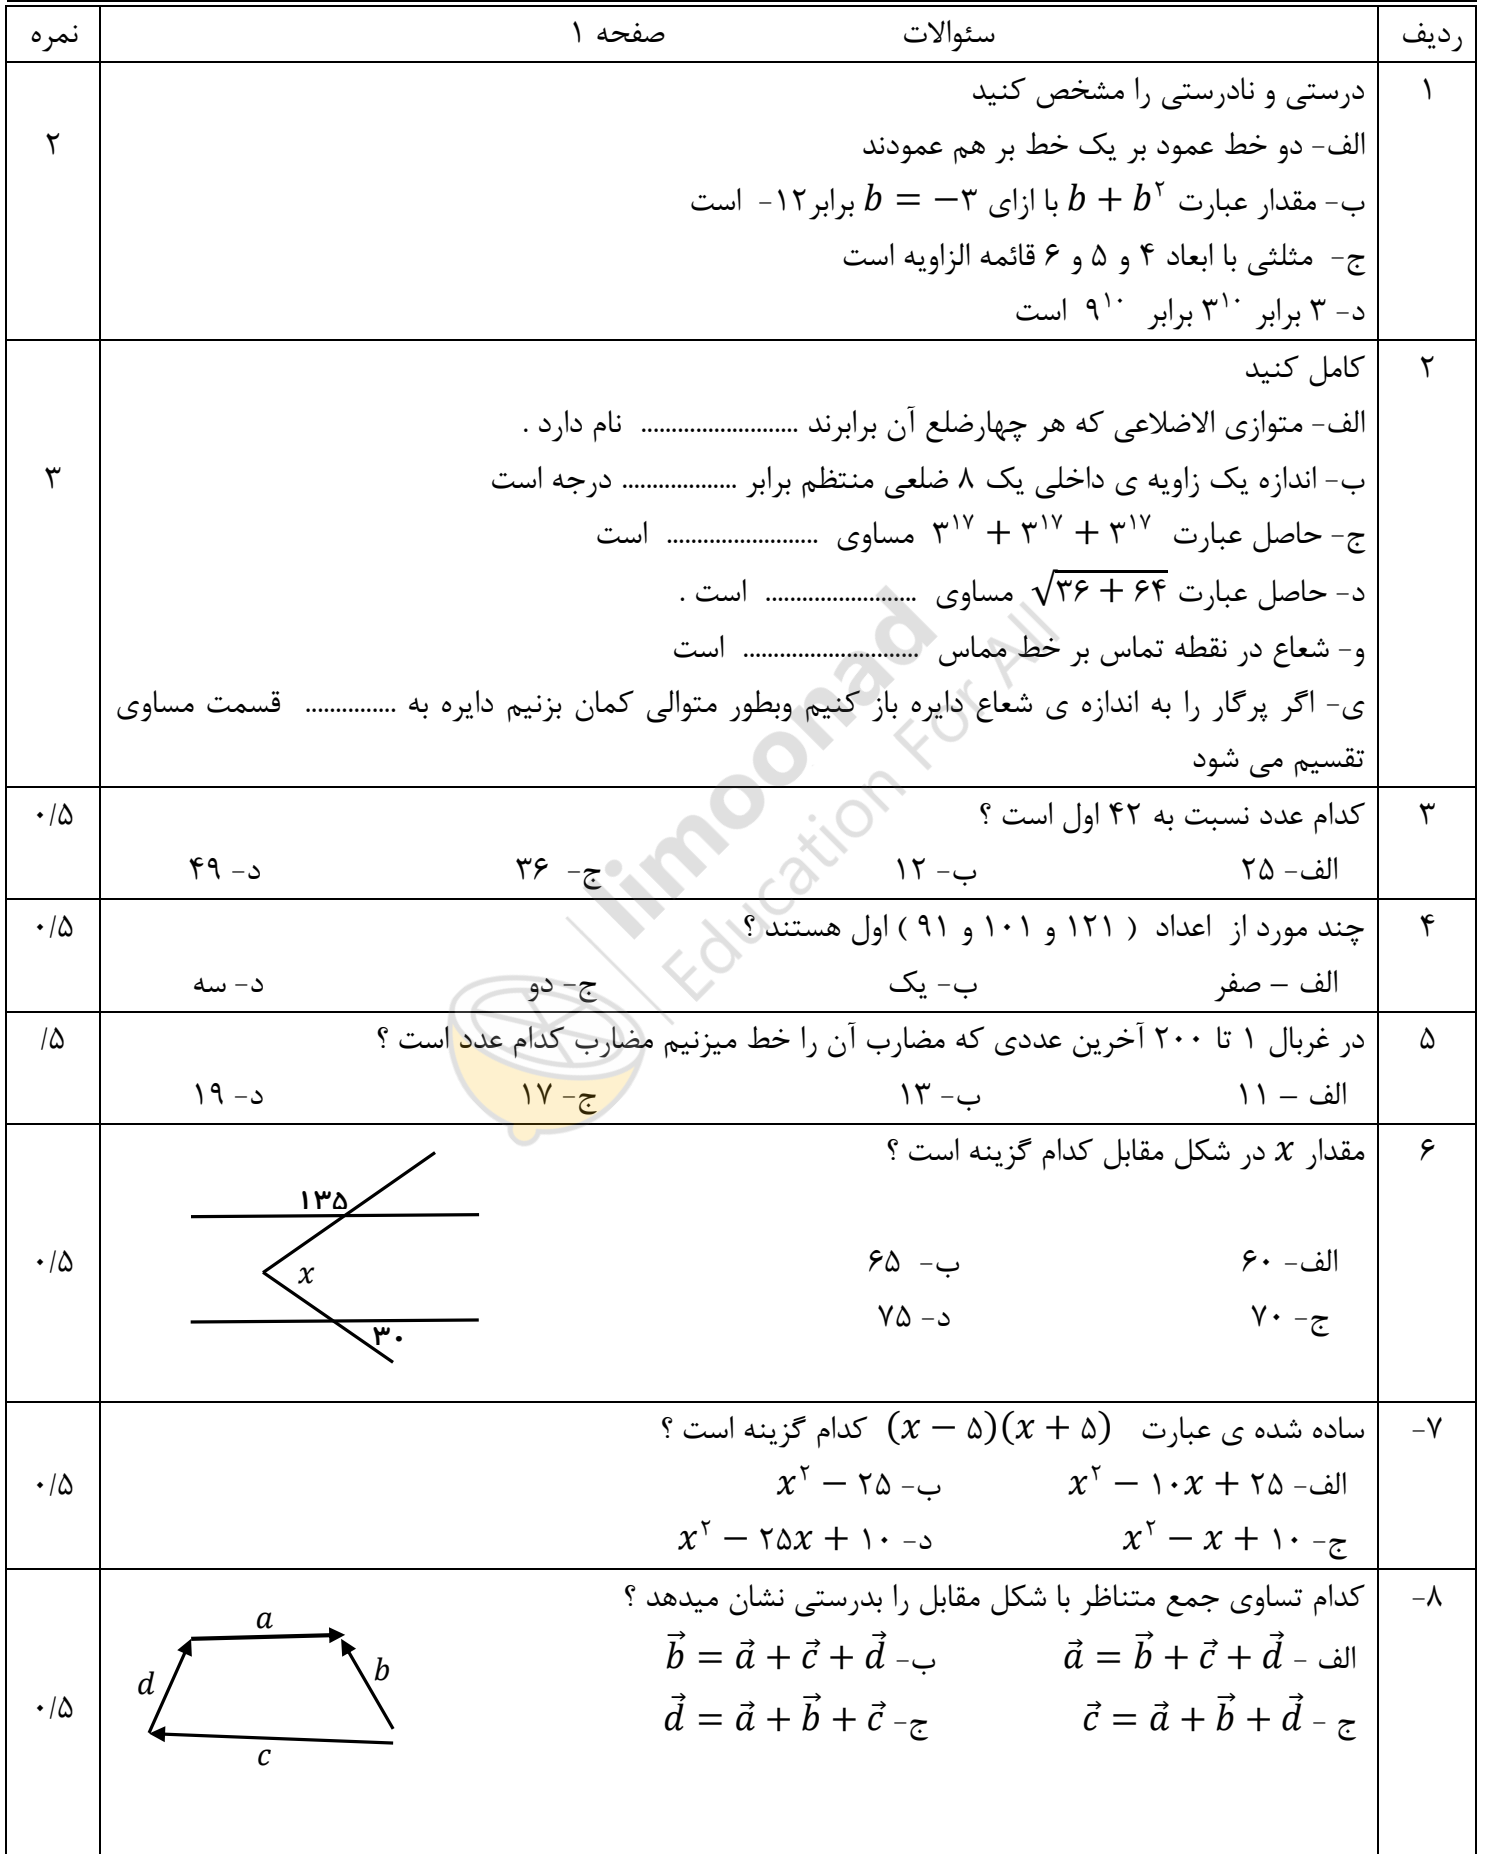 ردیف سئوالات صفحه ۱ نمره
۱ درستی و نادرستی را مشخص کنید
الف- دو خط عمود بر یک خط بر هم عمودند
۲
ب- مقدار عبارت b + b^۲ با ازای b = −۳ برابر ۱۲- است
ج- مثلثی با ابعاد ۴ و ۵ و ۶ قائمه الزاویه است
د- ۳ برابر ۳^۱۰ برابر ۹^۱۰ است
۲ کامل کنید
الف- متوازی الاضلاعی که هر چهارضلع آن برابرند .......................... نام دارد .
ب- اندازه یک زاویه ی داخلی یک ۸ ضلعی منتظم برابر ................... درجه است
۳
ج- حاصل عبارت ۳^۱۷ + ۳^۱۷ + ۳^۱۷ مساوی ......................... است
د- حاصل عبارت √(۳۶ + ۶۴) مساوی ......................... است .
و- شعاع در نقطه تماس بر خط مماس ............................. است
ی- اگر پرگار را به اندازه ی شعاع دایره باز کنیم وبطور متوالی کمان بزنیم دایره به ............... قسمت مساوی
تقسیم می شود
۳ کدام عدد نسبت به ۴۲ اول است ؟ ۰/۵
الف- ۲۵ ب- ۱۲ ج- ۳۶ د- ۴۹
۴ چند مورد از اعداد ( ۱۲۱ و ۱۰۱ و ۹۱ ) اول هستند ؟ ۰/۵
الف – صفر ب- یک ج- دو د- سه
۵ در غربال ۱ تا ۲۰۰ آخرین عددی که مضارب آن را خط میزنیم مضارب کدام عدد است ؟ /۵
الف – ۱۱ ب- ۱۳ ج- ۱۷ د- ۱۹
۶ مقدار x در شکل مقابل کدام گزینه است ؟
۱۳۵
الف- ۶۰ ب- ۶۵ x ۰/۵
ج- ۷۰ د- ۷۵ ۳۰
۷- ساده شده ی عبارت (x − ۵)(x + ۵) کدام گزینه است ؟
الف- x^۲ − ۱۰x + ۲۵ ب- x^۲ − ۲۵ ۰/۵
ج- x^۲ − x + ۱۰ د- x^۲ − ۲۵x + ۱۰
۸- کدام تساوی جمع متناظر با شکل مقابل را بدرستی نشان میدهد ؟
a
الف - a⃗ = b⃗ + c⃗ + d⃗ ب- b⃗ = a⃗ + c⃗ + d⃗
b d
ج - c⃗ = a⃗ + b⃗ + d⃗ ج- d⃗ = a⃗ + b⃗ + c⃗ ۰/۵
c
limoonad
Education For All